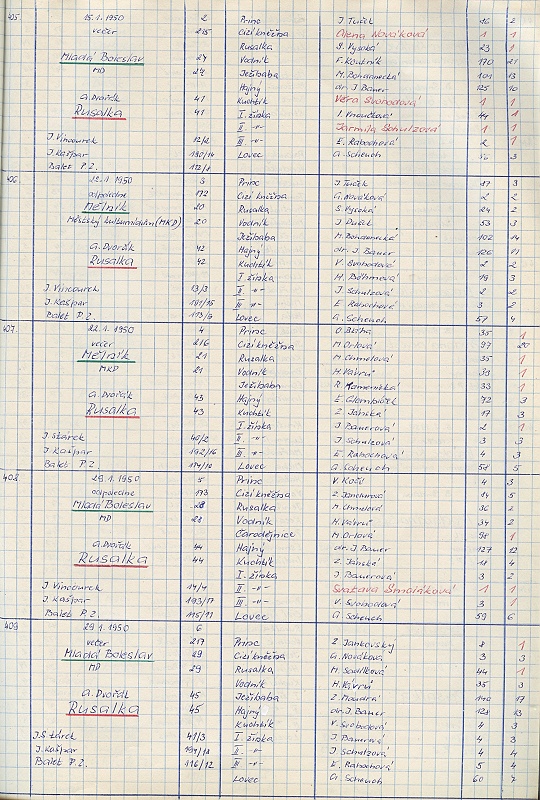 405. 15.1.1950 2 Princ J. Tuček 16 2
večer 215 Cizí kněžna Olena Nováková 1 1
Rusalka S. Vysoká 23 1
Mladá Boleslav 27 Vodník F. Koutník 170 21
MD 27 Ježibaba M. Bohdanecká 101 13
Hajný dr. J. Bauer 125 10
A. Dvořák 41 Kuchtík Věra Svobodová 1 1
Rusalka 41 I. žínka 44 1
II. -"- Jarmila Schulzová 1 1
J. Vincourek 12/2 III -"- E. Rabochová 2 1
J. Kašpar 190/14 Lovec A. Scheuch 56 3
Balet P.Z. 112/8
406. 22.1.1950 3 Princ J. Tuček 17 3
odpoledne 172 Cizí kněžna A. Nováková 2 2
Mělník 20 Rusalka S. Vysoká 24 2
Městský kulturní dům (MKD) 20 Vodník 53 3
Ježibaba M. Bohdanecká 102 14
A. Dvořák 42 Hajný dr. J. Bauer 126 11
Rusalka 42 Kuchtík V. Svobodová 2 2
I. žínka H. Böhmová 19 3
J. Vincourek 13/3 II -"- J. Schulzová 2 2
J. Kašpar 191/15 III -"- E. Rabochová 3 2
Balet P.Z. 113/9 Lovec A. Scheuch 57 4
407. 22.1.1950 4 Princ O. Bláha 35 1
večer 216 Cizí kněžna M. Orlová 97 20
Mělník 21 Rusalka M. Chmelová 35 1
MKD 21 Vodník H. Vávrů 33 1
Ježibaba 33 1
A. Dvořák 43 Hajný 72 3
Rusalka 43 Kuchtík Z. Jánská 17 3
I. žínka J. Bauerová 2 1
J. Stárek 40/2 II -"- J. Schulzová 3 3
J. Kašpar 192/16 III -"- E. Rabochová 4 3
Balet P.Z. 114/10 Lovec A. Scheuch 58 5
408 29.1.1950 5 Princ V. Kočí 4 3
odpoledne 173 Cizí kněžna 14 5
Mladá Boleslav 28 Rusalka M. Chmelová 36 2
MD 28 Vodník H. Vávrů 34 2
Čarodějnice M. Orlová 98 1
A. Dvořák 44 Hajný dr. J. Bauer 127 12
Rusalka 44 Kuchtík Z. Jánská 18 4
I. žínka J. Bauerová 3 2
J. Vincourek 14/4 II -"- Svatava 1 1
J. Kašpar 193/17 III -"- V. Svobodová 3 1
Balet P.Z. 115/11 Lovec A. Scheuch 59 6
409 29.1.1950 6
večer 217 Princ Z. Jankovský 8 1
Mladá Boleslav 29 Cizí kněžna A. Nováková 3 3
MD 29 Rusalka 44 1
Vodník H. Vávrů 35 3
A. Dvořák 45 Ježibaba 17
Rusalka 45 Hajný dr. J. Bauer 128 13
Kuchtík V. Svobodová 4 3
J. Stárek 41/3 I. žínka J. Bauerová 4 3
J. Kašpar 194/18 II -"- J. Schulzová 4 4
Balet P.Z. 116/12 III -"- E. Rabochová 5 4
Lovec A. Scheuch 60 7